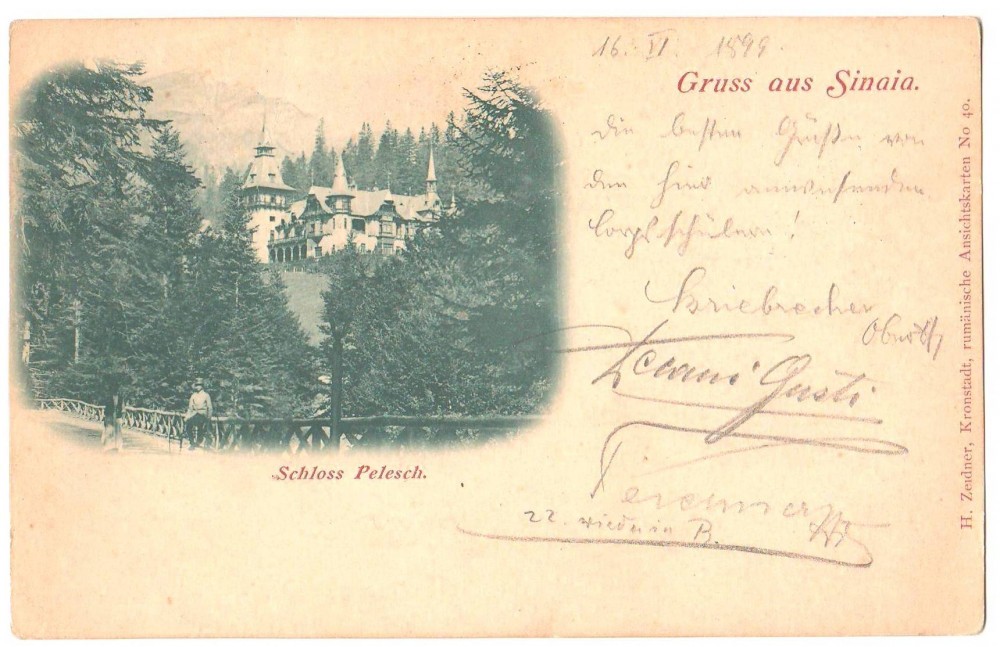 16. VI. 1899.
Gruss aus Sinaia.
Die besten Grüße von
den hier anwesenden
Corpsschülern!
Gusti
22. wieder in B.
Schloss Pelesch.
H. Zeidner, Kronstadt, rumänische Ansichtskarten No 40.